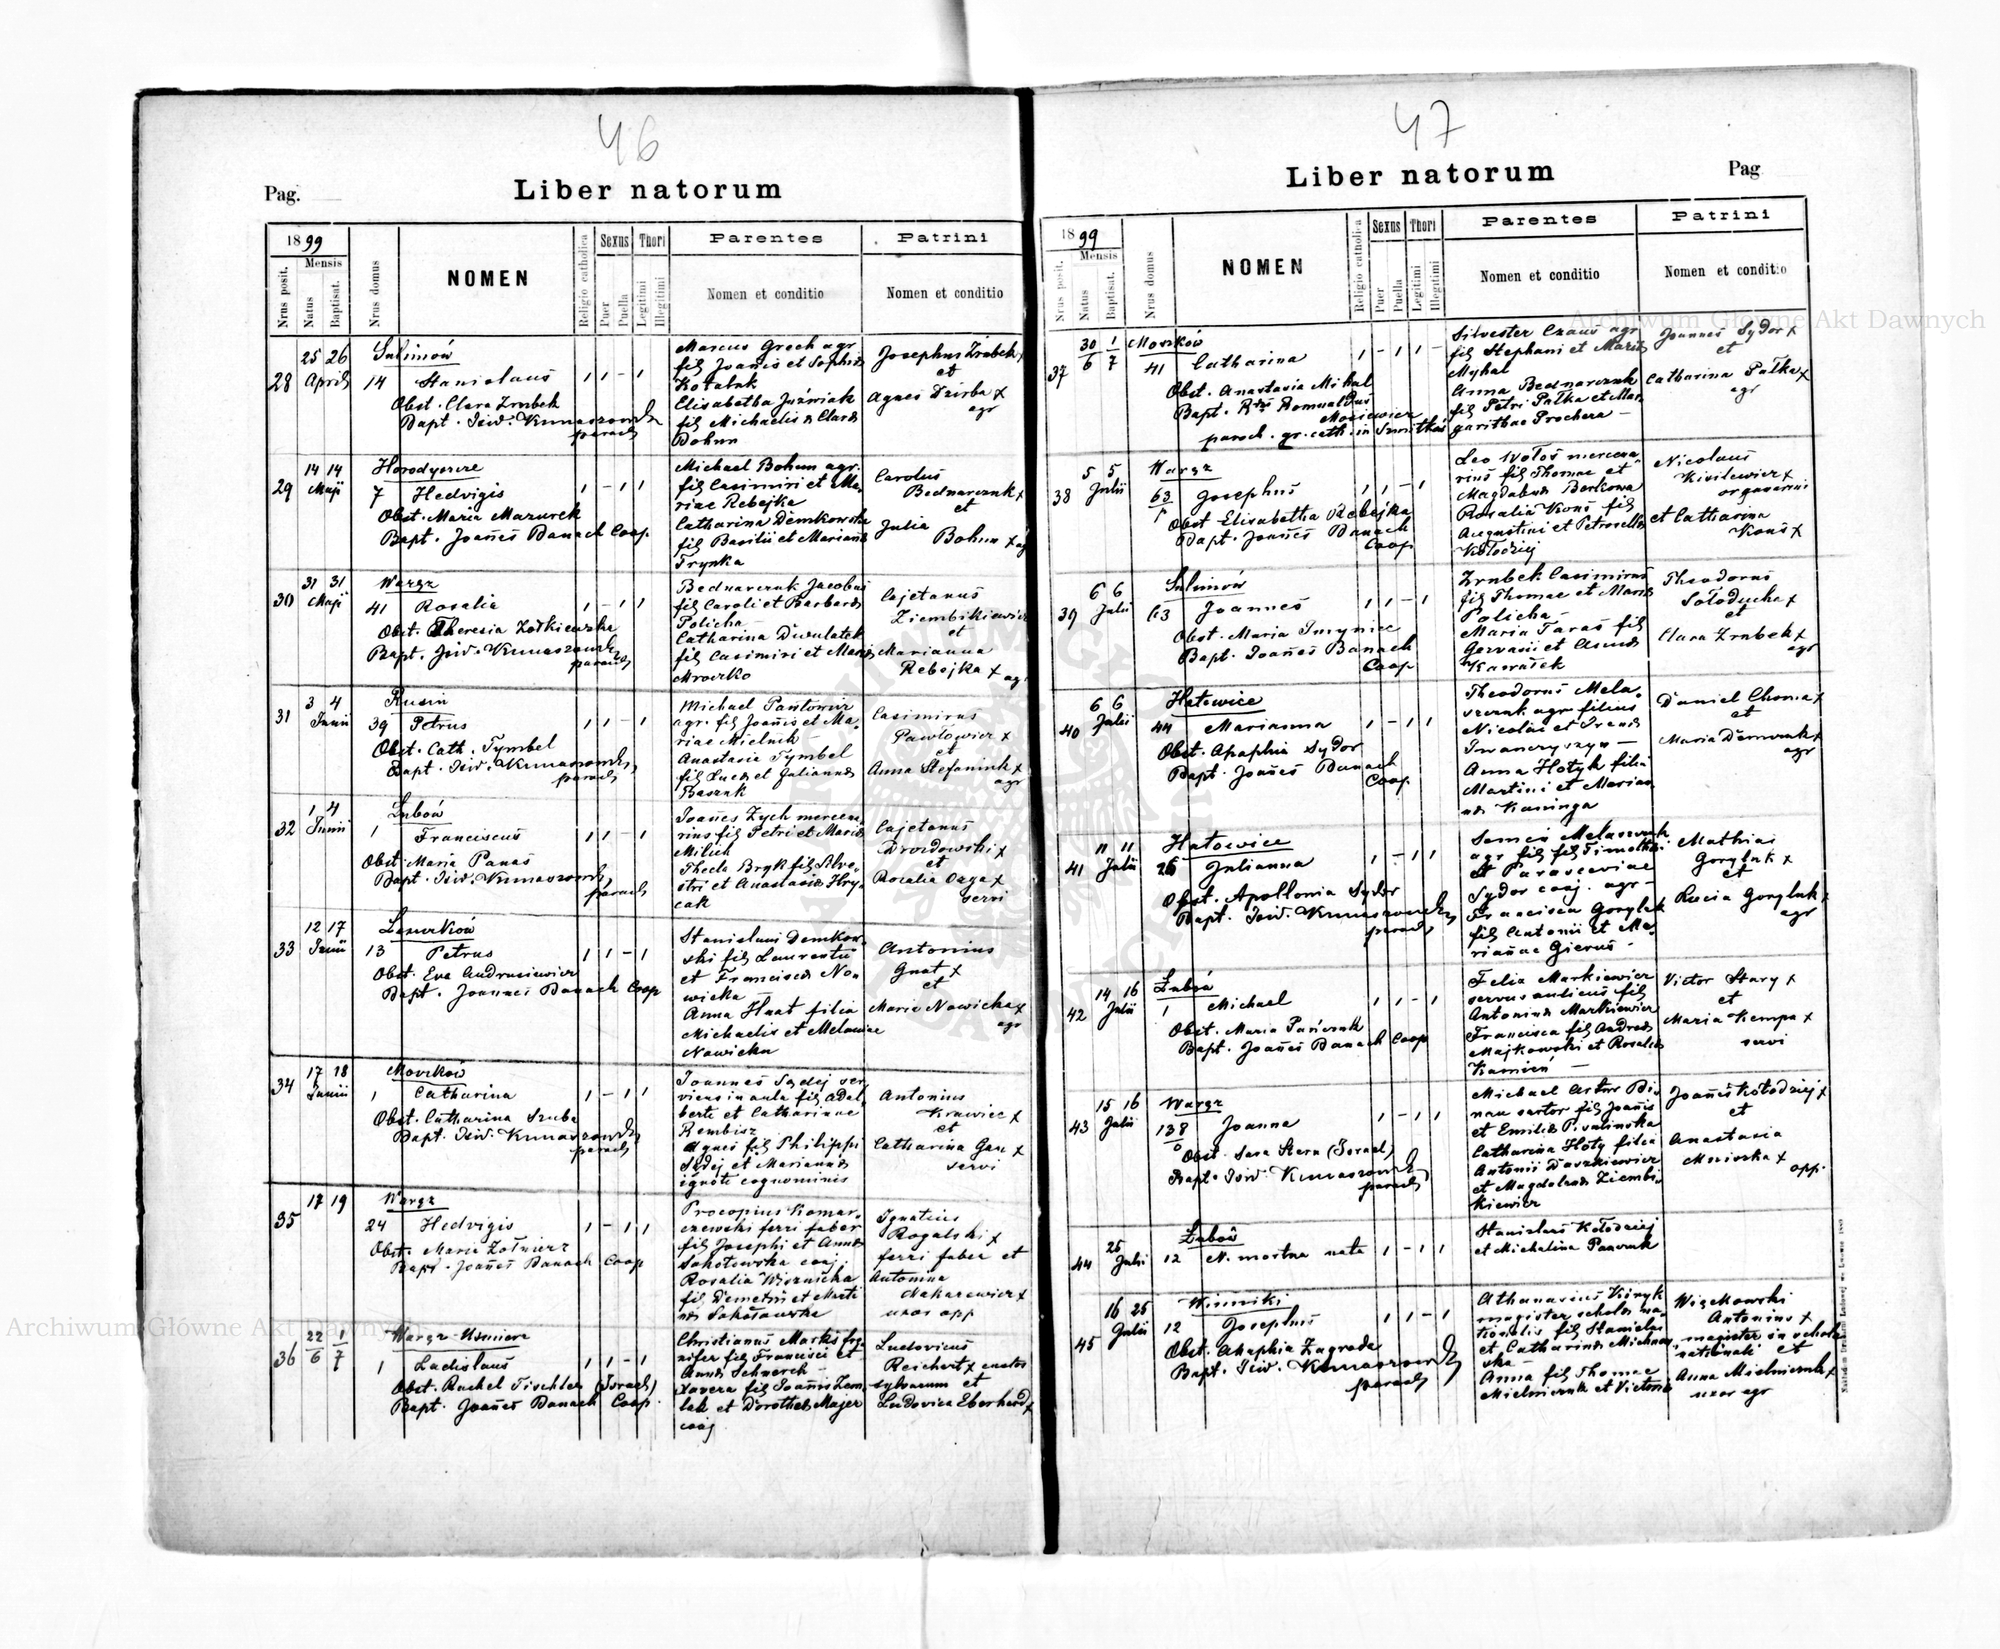 46
Pag.
Liber natorum
1899
Mensis
Nrus posit.
Natus
Baptisat.
Nrus domus
NOMEN
Religio catholica
Sexus
Puer
Puella
Thori
Legitimi
Illegitimi
Parentes
Nomen et conditio
Patrini
Nomen et conditio
28
25 26
April
Sulimów
14 Stanislaus
1 1 - 1
Obst. Clara Zrubek
Bapt.
Marcus Grech agr
fil Joannis et Sophia
Elisabetha Juźwiak
fil Michaelis & Clara
Bohun
Josephus Zrubek x
et
Agnes Dzirba x
agr
29
14 14
Maji
Horodyszcze
7 Hedvigis
1 - 1 1
Obst. Maria Mazurek
Bapt. Joannes Banach Coop.
Michael Bohun agr.
fil Casimiri et Ma
riae Rebejka
Catharina Demkowska
fil Basilii et Marianna
Frynka
Carolus
Bednarczuk x
et
Julia
Bohun x
30
31 31
Maji
Waręż
41 Rosalia
1 - 1 1
Obst. Theresia Żółkiewska
Bednarczuk Jacobus
fil Caroli et Barbara
Policha
Catharina
fil Casimiri et Maria
Mroczko
Cajetanus
Ziembikiewicz
et
Marianna
Rebejka x agr
31
3 4
Junii
Rusin
39 Petrus
1 1 - 1
Obst. Cath. Tymbel
agr. fil Joannis et Ma
riae Mielnik
Anastasia Tymbel
fil Luca et Julianna
Baszuk
Casimirus
Pawłowicz x
et
Anna Stefaniuk x
agr
32
1 4
Junii
Łubów
1 Franciscus
1 1 - 1
Obst. Maria Panas
Joannes Zych mercena
rius fil Petri et Maria
Milich
Thecla Bryk fil Silve
stri et Anastasia Hry
cak
Cajetanus
Drozdowski x
et
Rosalia Ozga x
servi
33
12 17
Junii
Leszczków
13 Petrus
1 1 - 1
Obst. Eva Andrusiewicz
Bapt. Joannes Banach Coop
Stanislaus Demkow
ski fil Laurentii
et Francisca No
wicka
Anna Hnat filia
Michaelis et Melaniae
Nowicka
Antonius
Gnat x
et
Maria Nowicka x
agr
34
17 18
Junii
Moszków
1 Catharina
1 - 1 1
Obst. Catharina Szuba
Joannes Sędej ser
viens in aula fil Adal
berti et Catharinae
Rembisz
Agnes fil Philippi
Sędej et Marianna
ignoti cognominis
Antonius
Krawiec x
et
Catharina Gac x
servi
35
17 19
Waręż
24 Hedvigis
1 - 1 1
Obst. Maria Żołnierz
Bapt. Joannes Banach Coop
Procopius Komar
czewski ferri faber
fil Josephi et Anna
Sokołowska conj.
Rosalia Wisznicka
fil Demetrii et Marti
Sokołowska
Ignatius
Rogalski x
ferri faber et
Antonina
Makarewicz x
uxor opp
36
22/6 1/7
1 Ladislaus
1 1 - 1
Obst. Rachel Fischler (Israel)
Bapt. Joannes Banach Coop.
Christianus Marks
fil Francisci et
Anna Schnerch
Xavera fil Joannis Zem
lak et Dorothea Majer
conj
Ludovicus
Reichert x custos
sylvarum et
Ludovica Eberhard x
47
Liber natorum
Pag
1899
Mensis
Nrus posit.
Natus
Baptisat.
Nrus domus
NOMEN
Religio catholica
Sexus
Puer
Puella
Thori
Legitimi
Illegitimi
Parentes
Nomen et conditio
Patrini
Nomen et conditio
37
30/6 1/7
Moszków
41 Catharina
1 - 1 1 -
Obst. Anastasia Mihal
Bapt. Romualdus
Mosiewicz
paroch. gr. cath. in
Silvester Czaus agr
fil Stephani et Maria
Mykal
Anna Bednarczuk
fil Petri Pałka et Mar
garithae Prochera
Joannes Sydor x
et
Catharina Pałka x
agr
38
5 5
Julii
Waręż
63 Josephus
1 1 - 1
Obst Elisabetha Rebejka
Bapt. Joannes Banach
Coop
Leo Wołos mercena
rius fil Thomae et
Magdalena Berkowa
Rosalia Kons fil
Augustini et Petronella
Kołodziej
Nicolaus
Kisilewicz x
et Catharina
Kons x
39
6 6
Julii
Sulimów
63 Joannes
1 1 - 1
Obst. Maria Smyniec
Bapt. Joannes Banach
Coop
Zrubek Casimirus
fil Thomae et Maria
Policha
Maria Taras fil
Gervasii et
Theodorus
Sołoducha x
et
Clara Zrubek x
agr
40
6 6
Julii
Hatowice
44 Marianna
1 - 1 1
Obst. Apaphia Sydor
Bapt. Joannes Banach
Coop
Theodorus Mela
szczuk agr filius
Nicolai et Irena
Iwanczyszyn
Anna Hotyk filia
Martini et Marian
na Kaminga
Daniel Choma x
et
Maria Demczuk x
agr
41
11 11
Julii
Hatowice
26 Julianna
1 - 1 1
Obst. Apollonia Sydor
Semen Melaszczuk
agr fil fil Timothei
et Parasceviae
Sydor conj. agr
Francisca Goryluk
fil Antonii et Ma
rianae Gierus
Mathias
Goryluk x
et
Rucia Goryluk x
agr
42
14 16
Julii
Łubów
1 Michael
1 1 - 1
Obst. Maria Pańczuk
Bapt. Joannes Banach Coop
Felix Markiewicz
servus aulicus fil
Antonina Markiewicz
Francisca fil Andrea
Majkowski et Rosalia
Kamień
Victor Stary x
et
Maria Kempa x
servi
43
15 16
Julii
Waręż
138 Joanna
1 - 1 1
Obst. Sara Stern (Israel)
Michael Artur Bi
nau sartor fil Joannis
et Emilia Pisulinska
Catharina Hoty filia
Antonii Daszkiewicz
et Magdalena Ziembi
kiewicz
Joannes Kołodziej x
et
Anastasia
x
opp.
44
25
Julii
Łubów
12 N. mortua nata
1 - 1 1
Stanislaus Kołodziej
et Michalina Panczuk
45
16 25
Julii
Winniki
12 Josephus
1 1 - 1
Obst. Ahaphia Zagroda
Athanasius Kiryk
magister schola na
tionalis fil Stanislai
et Catharina Michnow
ska
Anna fil Thomae
Mielniczuk et Victoria
Więckowski
Antonius x
magister in schola
nationali et
Anna Mielniczuk x
uxor agr
Archiwum Główne Akt Dawnych
Archiwum Główne Akt Dawnych